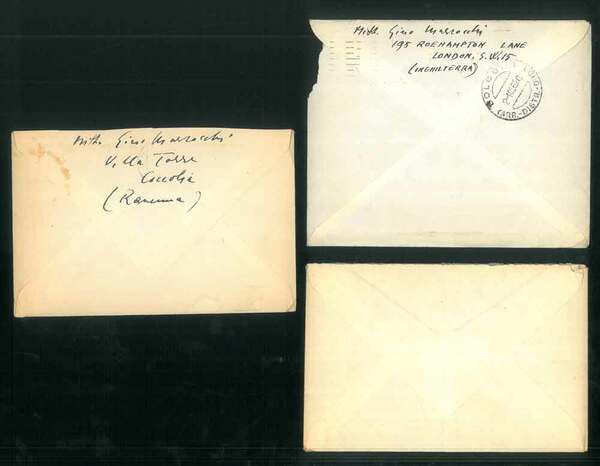 Mitt. Gino Marocchi
Villa Torre
Coccolia
(Ravenna)
Mitt. Gino Marocchi
195 ROEHAMPTON LANE
LONDON, S.W.15
(INGHILTERRA)
BOLOG
CARR.-DISTR.